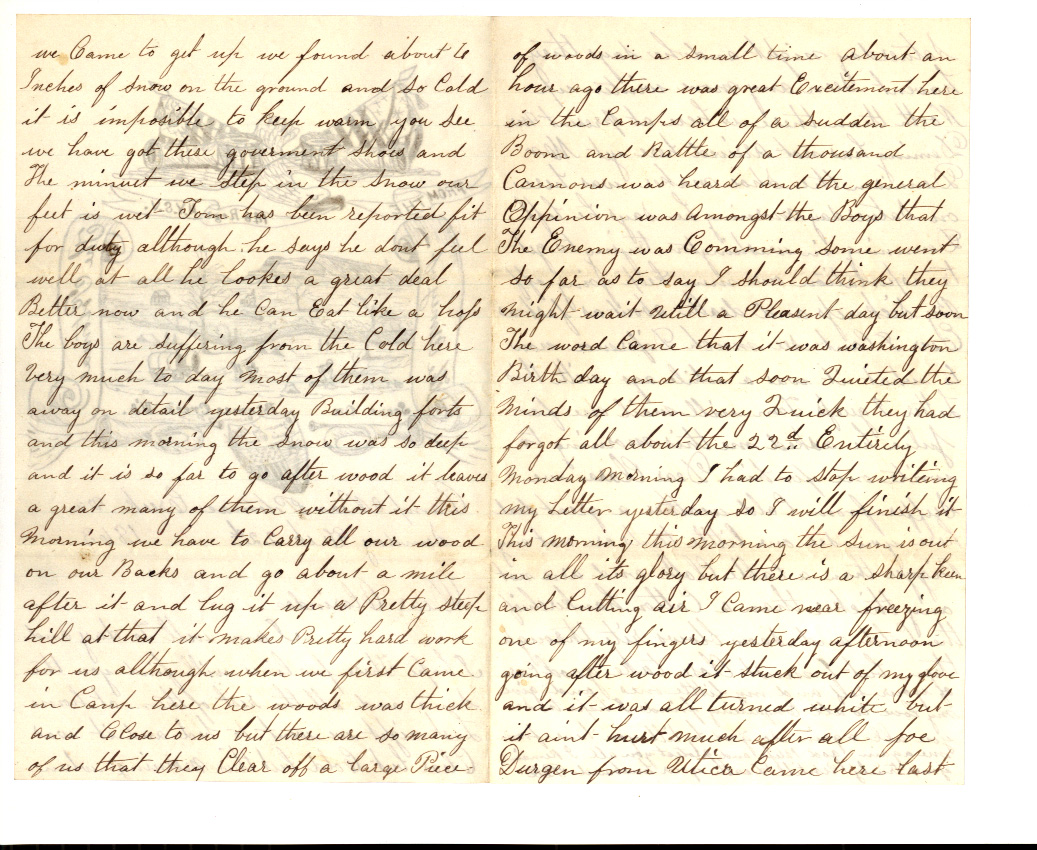 we Came to get up we found about 16
Inches of snow on the ground and so Cold
it is imposible to keep warm you see
we have got these goverment shoes and
The minuet we step in the snow our
feet is wet Tom has been reported fit
for duty although he says he dont feel
well at all he lookes a great deal
Better now and he Can Eat like a hofs
The boys are suffering from the Cold here
Very much to day most of them was
away on detail yesterday Building forts
and this morning the snow was so deep
and it is so far to go after wood it leaves
a great many of them without it this
Morning we have to Carry all our wood
on our Backs and go about a mile
after it and lug it up a Pretty steep
hill at that it makes Pretty hard work
for us although when we first Came
in Camp here the woods was thick
and Close to us but there are so many
of us that they Clear off a large Piece
of woods in a small time about an
hour ago there was great Excitement here
in the Camps all of a sudden the
Boom and Rattle of a thousand
Cannons was heard and the general
Oppinion was Amongst the Boys that
The Enemy was Comming some went
so far as to say I should think they
might wait untill a Pleasent day but soon
The word Came that it was washington
Birth day and that soon Quieted the
minds of them very Quick they had
forgot all about the 22d Entirely
Monday Morning I had to stop writeing
my Letter yesterday so I will finish it
This morning this morning the sun is out
in all its glory but there is a sharp keen
and Cutting air I Came near freezing
one of my fingers yesterday afternoon
going after wood it stuck out of my glove
and it was all turned white but
it aint hurt much after all Joe
Durgen from Utica Came here last